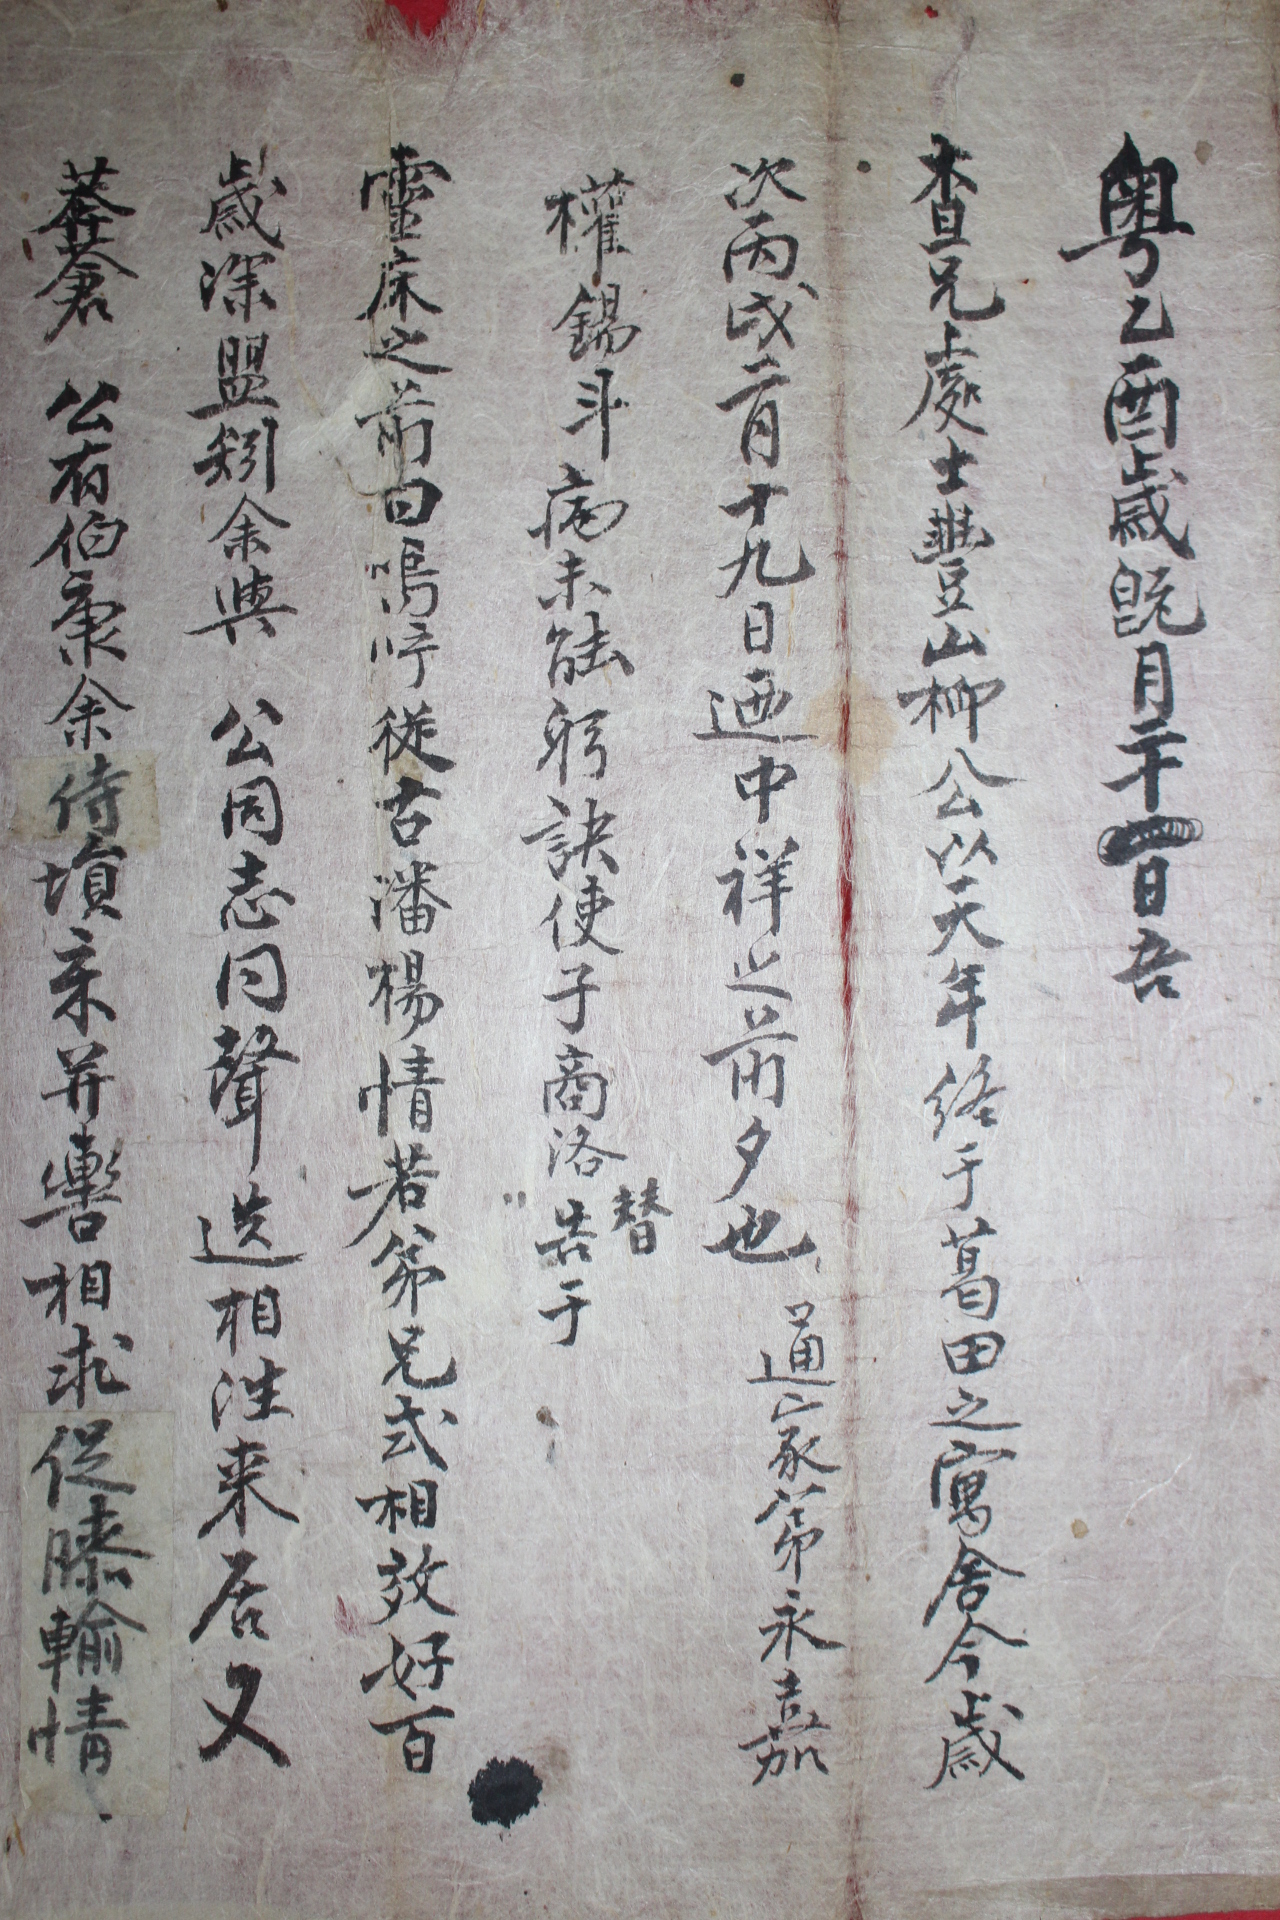 粤乙酉歲旣月二十四日吾
查兄處士豊山柳公以天年終于葛田之寓舍今歲
次丙戌二月十九日迺中祥之前夕也 通家第永嘉
權錫斗病未能躬訣使子商洛替告于
靈床之前曰嗚呼從古潘楊情若第兄式相效好百
歲深盟矧余與 公同志同聲迭相往来居又
莽蒼 公有伯康余侍墳亲并轡相求促膝輸情